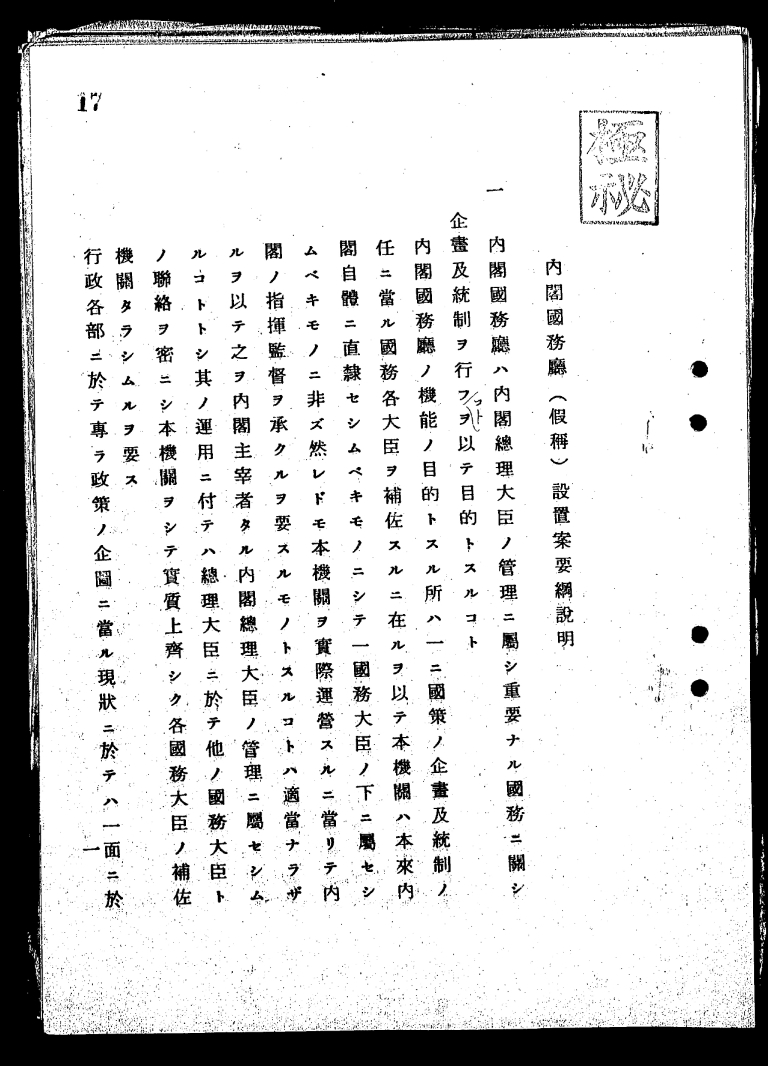 17
極秘
内閣國務廳(假稱)設置案要綱說明
一
內閣國務廳ハ內閣總理大臣ノ管理ニ屬シ重要ナル國務ニ關シ
企畫及統制ヲ行フヲ以テ目的トスルコト
コト
內閣國務廳ノ機能ノ目的トスル所ハ一ニ國策ノ企畫及統制ノ
任ニ當ル國務各大臣ヲ補佐スルニ在ルヲ以テ本機關ハ本來內
閣自體ニ直隷セシムベキモノニシテ一國務大臣ノ下ニ屬セシ
ムベキモノニ非ズ然レドモ本機關ヲ實際運營スルニ當リテ內
閣ノ指揮監督ヲ承クルヲ要スルモノトスルコトハ適當ナラザ
ルヲ以テ之ヲ內閣主宰者タル內閣總理大臣ノ管理ニ屬セシム
ルコトトシ其ノ運用ニ付テハ總理大臣ニ於テ他ノ國務大臣ト
ノ聯絡ヲ密ニシ本機關ヲシテ實質上齊シク各國務大臣ノ補佐
機關タラシムルヲ要ス
行政各部ニ於テ專ラ政策ノ企圖ニ當ル現狀ニ於テハ一面ニ於
一